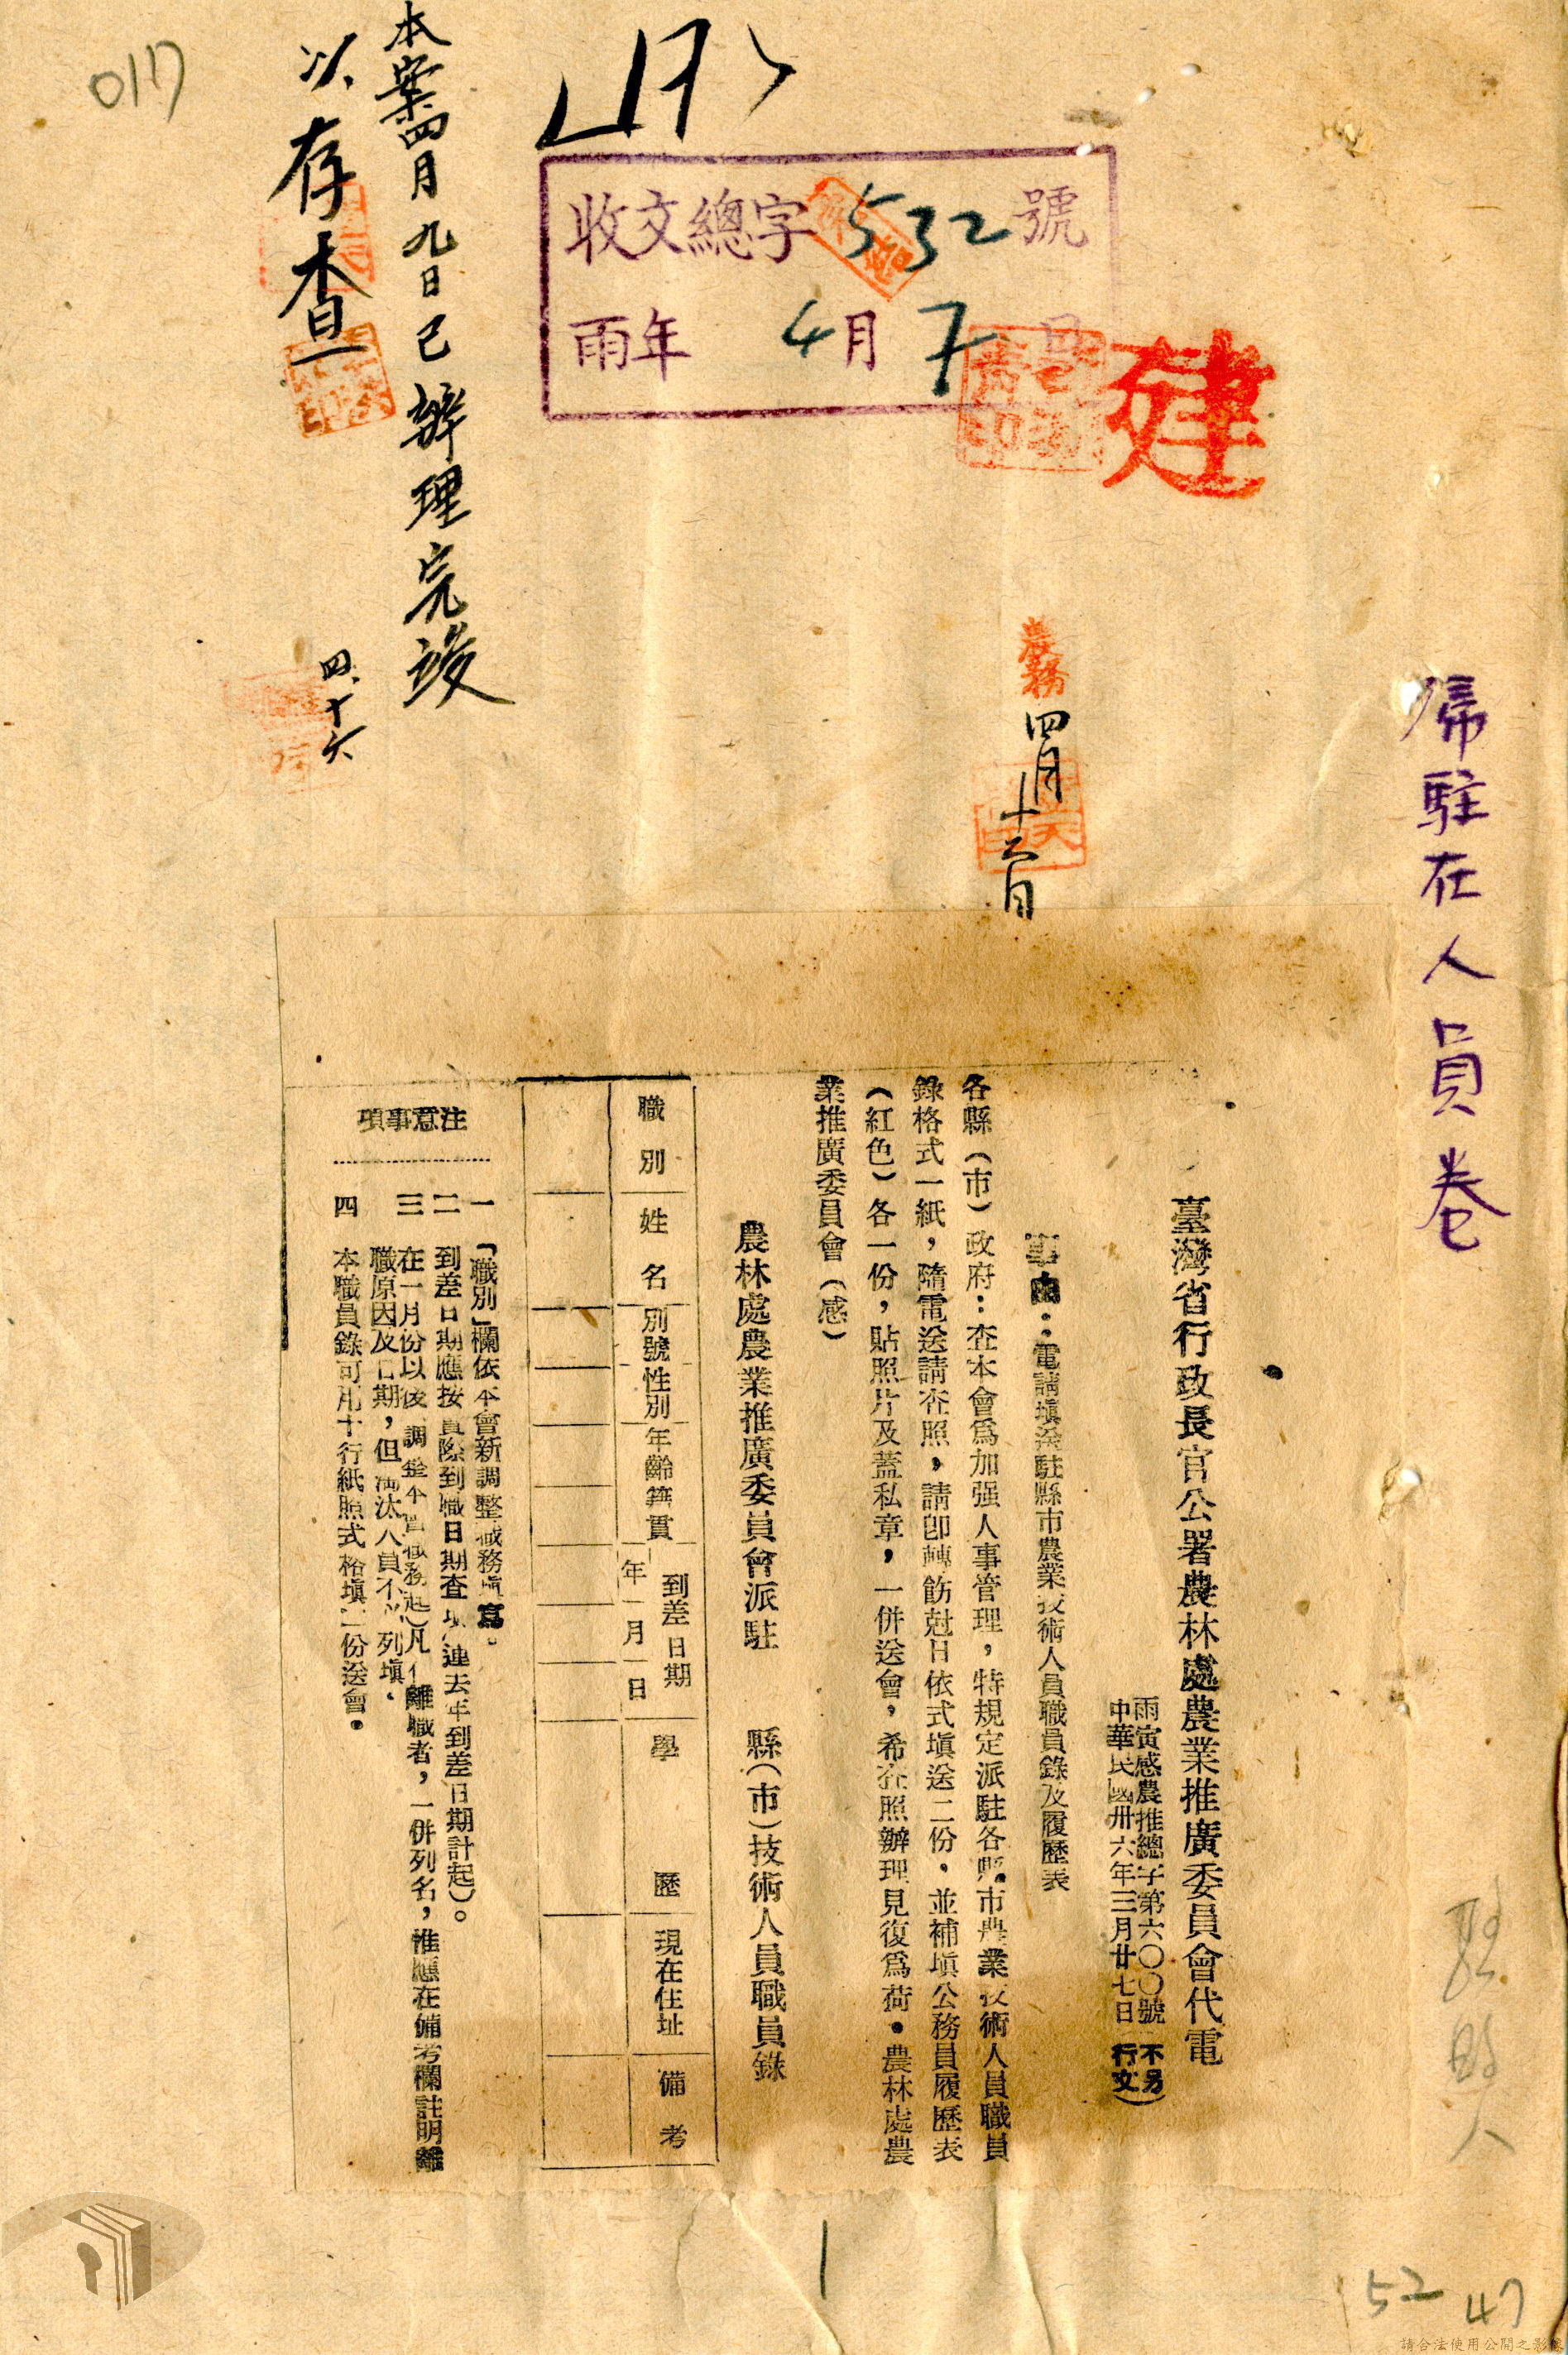 歸駐在人員卷
建
收文總字532號
雨年 4月7日
農務
四月十六日
本案四月九日已辦理完竣
以存查
四、十六
0117
臺灣省行政長官公署農林處農業推廣委員會代電
雨寅感農推總字第六〇〇號
中華民國卅六年三月廿七日
(不另行文)
事由：電請填送駐縣市農業技術人員職員錄及履歷表
各縣（市）政府：查本會為加强人事管理，特規定派駐各縣市農業技術人員職員
錄格式一紙，隨電送請查照，請卽轉飭尅日依式塡送二份，並補塡公務員履歷表
（紅色）各一份，貼照片及蓋私章，一併送會，希查照辦理見復為荷。農林處農
業推廣委員會（感）
農林處農業推廣委員會派駐 縣（市）技術人員職員錄
職別
姓名
別號
性別
年齡
籍貫
到差日期
年 月 日
學歷
現在住址
備考
注意事項
一 「職別」欄依本會新調整職務塡寫。
二 到差日期應按實際到職日期查塡（連去年到差日期計起）。
三 在一月份以後（調整本會職務起）凡 離職者，一併列名，惟應在備考欄註明離
職原因及日期，但淘汰人員不必列塡。
四 本職員錄可用十行紙照式格塡二份送會。
52
47
請合法使用公開之影像